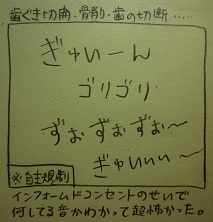 歯ぐき切開・骨削・歯の切断‥‥
ぎゅいーん
ゴリゴリ
ずぉずぉずぉ〜
ぎゅいぃぃ〜
※自主規制
インフォームドコンセントのせいで
何してる音かわかって超怖かった。